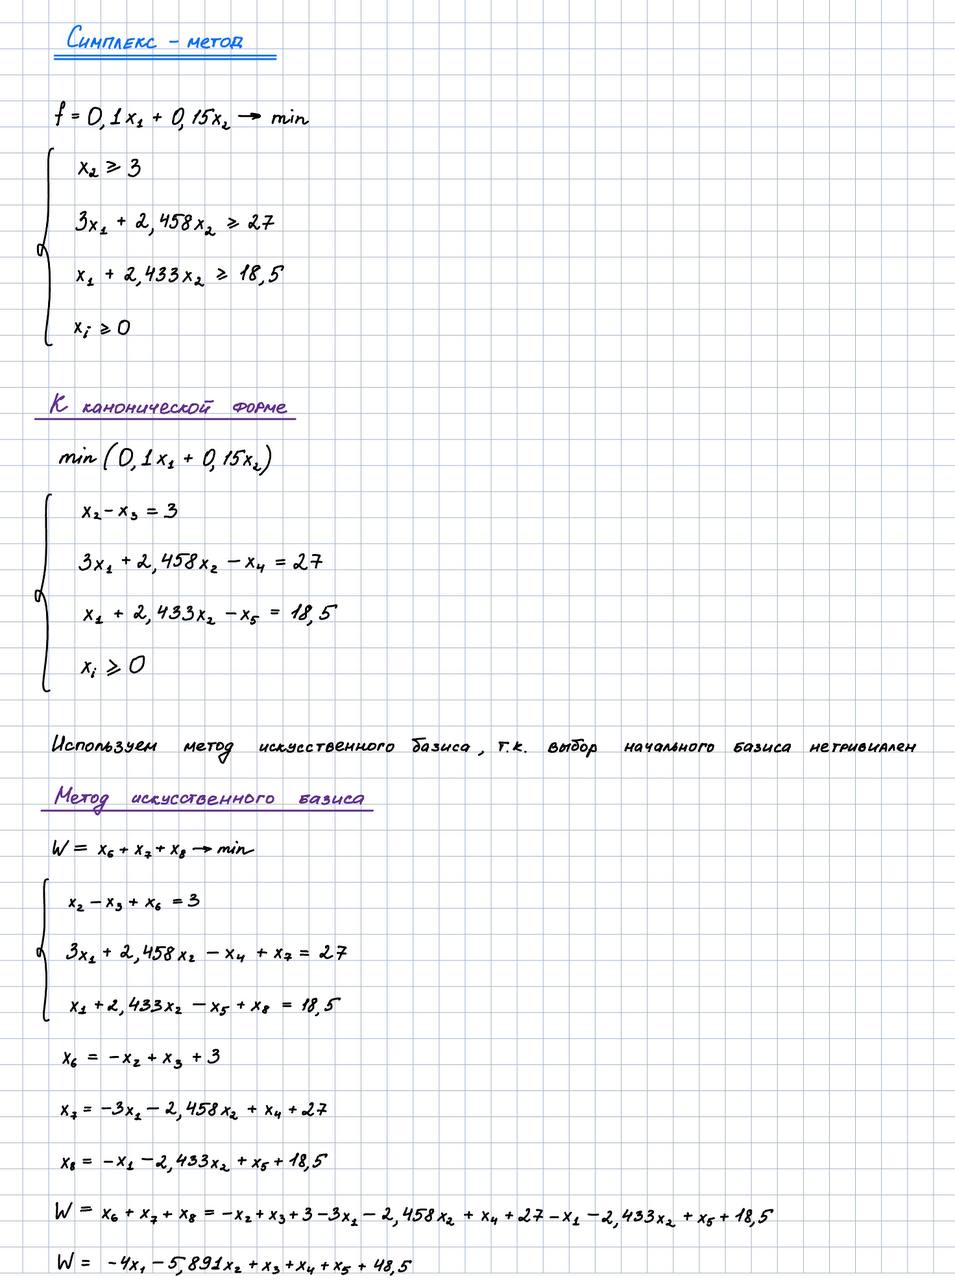 Симплекс - метод
f = 0,1x₁ + 0,15x₂ → min
x₂ ≥ 3
3x₁ + 2,458x₂ ≥ 27
x₁ + 2,433x₂ ≥ 18,5
xᵢ ≥ 0
К канонической форме
min (0,1x₁ + 0,15x₂)
x₂ - x₃ = 3
3x₁ + 2,458x₂ - x₄ = 27
x₁ + 2,433x₂ - x₅ = 18,5
xᵢ ≥ 0
Используем метод искусственного базиса, т.к. выбор начального базиса нетривиален
Метод искусственного базиса
W = x₆ + x₇ + x₈ → min
x₂ - x₃ + x₆ = 3
3x₁ + 2,458x₂ - x₄ + x₇ = 27
x₁ + 2,433x₂ - x₅ + x₈ = 18,5
x₆ = -x₂ + x₃ + 3
x₇ = -3x₁ - 2,458x₂ + x₄ + 27
x₈ = -x₁ - 2,433x₂ + x₅ + 18,5
W = x₆ + x₇ + x₈ = -x₂ + x₃ + 3 - 3x₁ - 2,458x₂ + x₄ + 27 - x₁ - 2,433x₂ + x₅ + 18,5
W = -4x₁ - 5,891x₂ + x₃ + x₄ + x₅ + 48,5